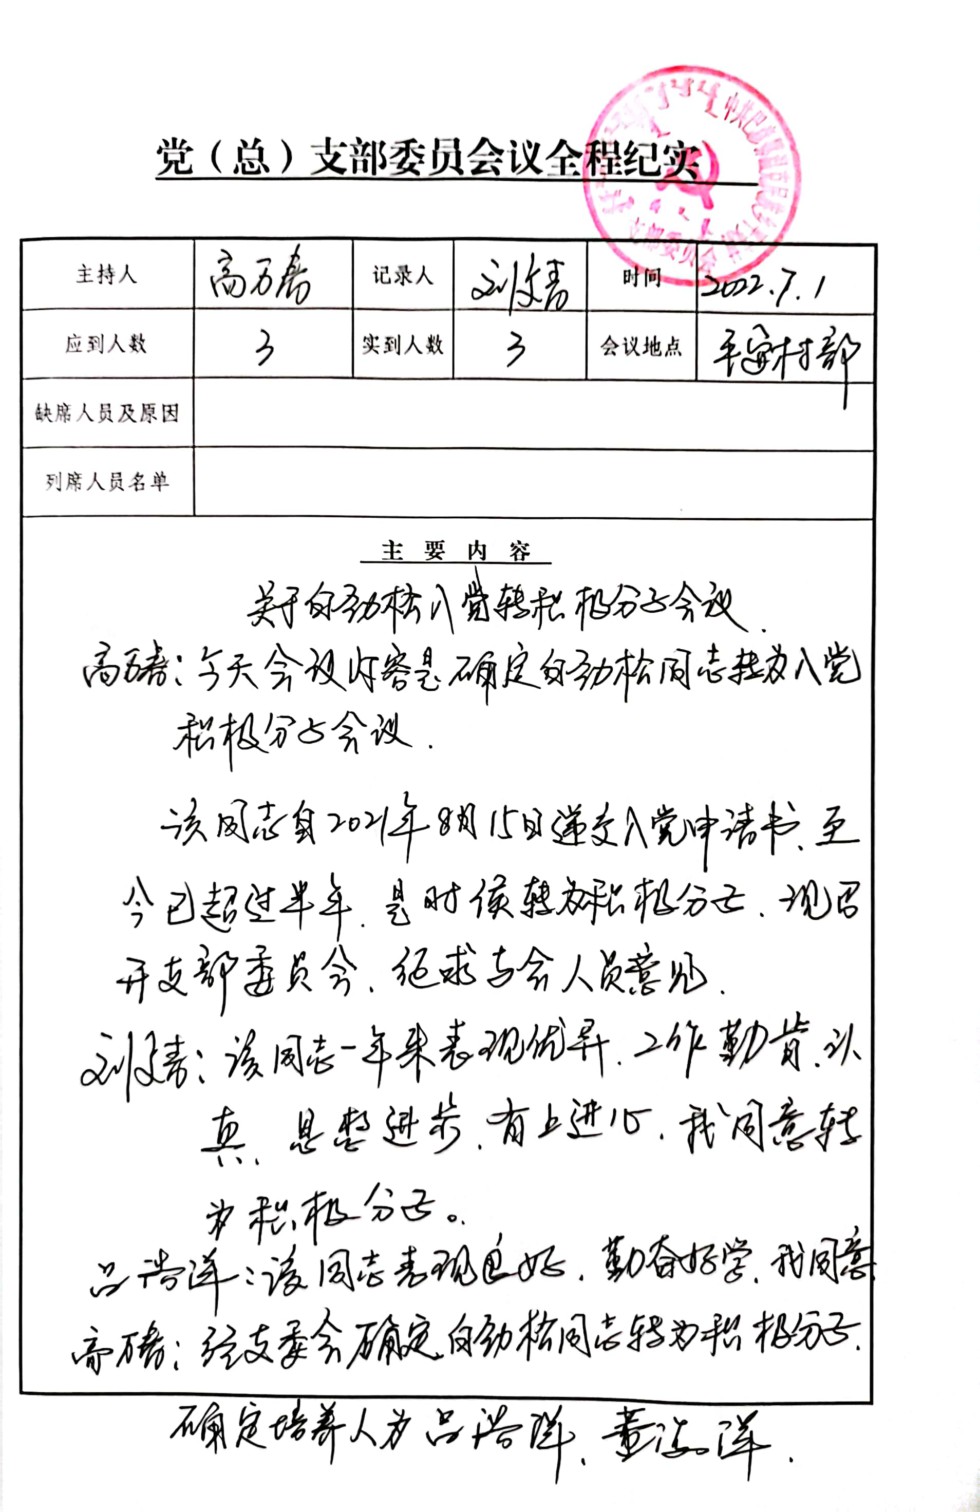 党（总）支部委员会议全程纪实
支部委员会
主持人 高万春 记录人 刘文春 时间 2022.7.1
应到人数 3 实到人数 3 会议地点 平安村部
缺席人员及原因
列席人员名单
主 要 内 容
关于白劲松入党转积极分子会议.
高万春：今天会议内容是确定白劲松同志转为入党
积极分子会议.
该同志自2021年8月15日递交入党申请书、至
今已超过半年.是时侯转为积极分子.现召
开支部委员会.征求与会人员意见.
刘文春：该同志一年来表现优异.工作勤肯.认
真.思想进步.有上进心.我同意转
为积极分子。
吕浩洋：该同志表现良好.勤奋好学.我同意
高万春：经支委会确定白劲松同志转为积极分子.
确定培养人为吕浩洋、董海洋.